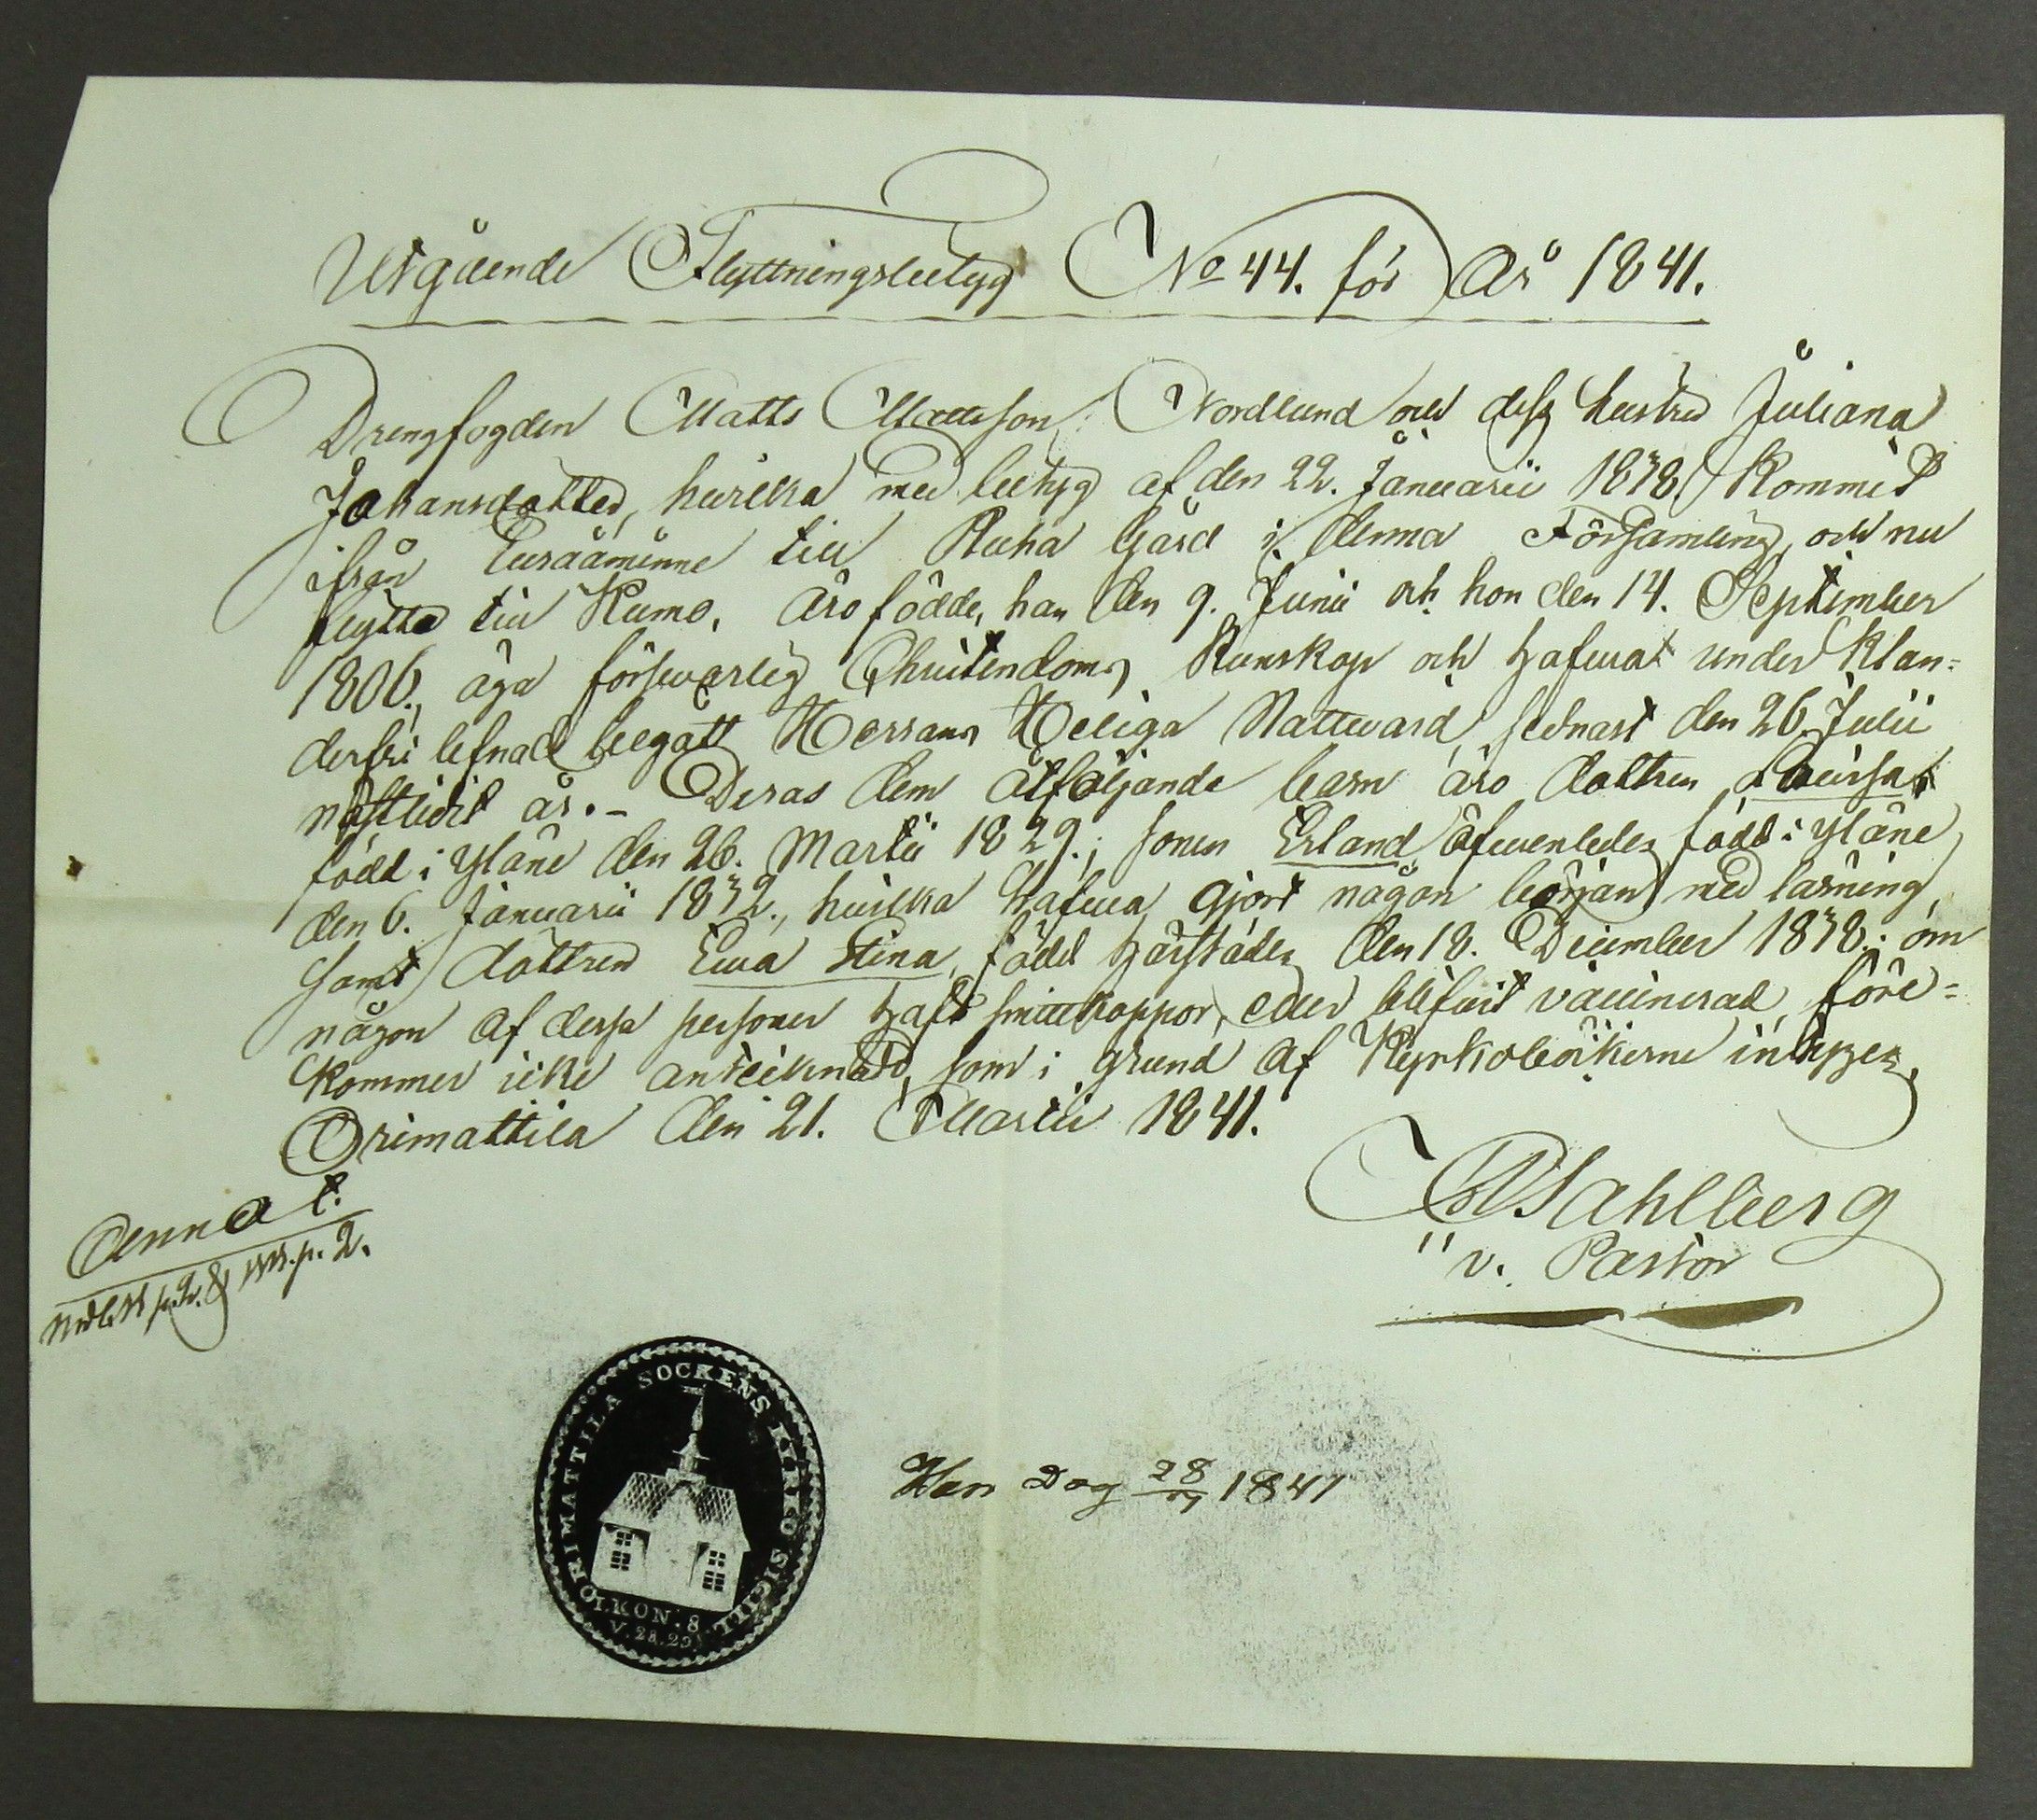 Utgående Flyttningsbetyg No 44. för År 1841.
Drengfogden Matts Mattsson Nordlund och dess hustru Juliana
Johansdotter, hwilka med betyg af den 22. Januarii 1838. kommit
ifrån Euraåminne till Ruha Gård i denna Församling, och nu
flytta till Kumo, äro födde, han den 9. Junii och hon den 14. September
1806., äga förswarlig Christendoms Kunskap och hafwa under klan-
derfri lefnad begått Herrans Heliga Nattward sednast den 26. Julii
nästledit år. - Deras dem åtföljande barn äro dottren Lowisa
född i Yläne den 26. Martii 1829.; sonen Erland äfwenledes född i Yläne
den 6. Januarii 1832., hwilka hafwa gjort någon början med läsning,
samt dottren Ewa Stina, född härstädes den 18. December 1838.; om
någon af dessa personer haft smittkoppor, eller blifwit vaccinerad, före-
kommer icke antecknadt, som i grund af Kyrkoböckerne intygas,
Orimattila den 21. Martii 1841.
Ahlberg
v. Pastor
Annot.
p. 2.
ORIMATTILA SOCKENS KYRKO SIGILL
I. KON. 8
V. 28. 29
Ken Dag 28 1841